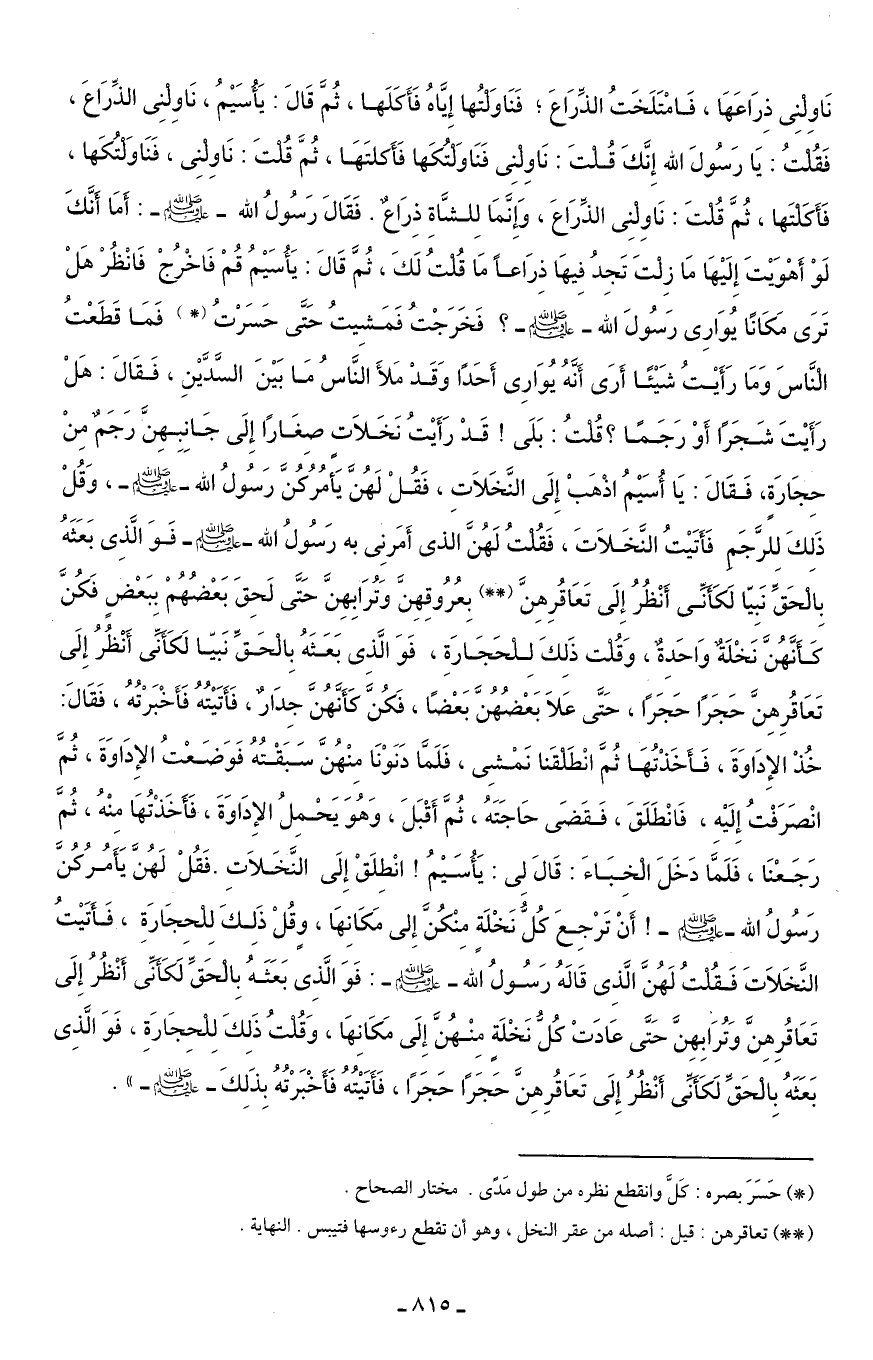 نَاوِلْنِى ذِرَاعَهَا ، فَامْتَلَخَتُ الذِّرَاعَ ؛ فَنَاوَلْتُها إِيَّاهُ فَأَكَلَها ، ثُمَّ قَالَ : يَأُسَيْمُ ، نَاوِلْنِى الذِّرَاعَ ،
فَقُلْتُ : يَا رَسُولَ الله إِنَّكَ قُلْتَ : نَاوِلْنِى فَنَاوَلْتُكَهَا فَأَكلتَهَا ، ثُمَّ قُلْتَ : نَاوِلْنِى ، فَنَاوَلْتُكَها ،
فَأَكَلْتَها ، ثُمَّ قُلْتَ : نَاوِلْنِى الذِّرَاعَ ، وَإِنَّمَا لِلشَّاةِ ذِرَاعٌ . فَقَالَ رَسُولُ الله - ﷺ - : أَمَا أَنَّكَ
لَوْ أَهْوَيْتَ إِلَيْهَا مَا زِلْتَ تَجِدُ فِيهَا ذِرَاعاً مَا قُلْتُ لَكَ ، ثُمَّ قَالَ : يَأُسَيْمُ قُمْ فَاخْرُجْ فَانْظُرْ هَلْ
تَرَى مَكَانًا يُوَارِى رَسُولَ الله - ﷺ - ؟ فَخَرَجْتُ فَمَشِيتُ حَتَّى حَسَرْتُ (*) فَمَا قَطَعْتُ
النَّاسَ وَمَا رَأَيْتُ شَيْئًا أَرَى أَنَّهُ يُوَارِى أَحَدًا وَقَدْ مَلأَ النَّاسُ مَا بَيْنَ السَّدَّيْنِ ، فَقَالَ : هَلْ
رَأَيْتَ شَجَرًا أَوْ رَجَمًا ؟ قُلْتُ : بَلَى ! قَدْ رَأَيْتُ نَخَلاَتٍ صِغَارًا إِلَى جَانِبِهِنَّ رَجَمٌ مِنْ
حِجَارَةٍ، فَقَالَ : يَا أُسَيْمُ اذْهَبْ إِلَى النَّخَلاَتِ ، فَقُلْ لَهُنَّ يَأْمُرُكُنَّ رَسُولُ الله - ﷺ - ، وَقُلْ
ذَلِكَ لِلرَّجَمِ فَأَتَيْتُ النَّخَلاَتَ ، فَقُلْتُ لَهُنَّ الذى أَمَرَنِى به رَسُولُ الله - ﷺ - فَوَ الَّذِى بَعَثَهُ
بِالْحَقِّ نَبِيّا لَكَأَنِّى أَنْظُرُ إِلَى تَعَاقُرِهِنَّ (**) بِعُرُوقِهِنَّ وَتُرَابِهِنَّ حَتَّى لَحِقَ بَعْضُهُمْ بِبَعْضٍ فَكُنَّ
كَأَنَّهُنَّ نَخْلَةٌ وَاحَدَةٌ ، وَقُلْتُ ذَلِكَ لِلْحِجَارَةِ ، فَوَ الَّذِى بَعَثَهُ بِالْحَقِّ نَبِيّا لَكَأَنِّى أَنْظُرُ إِلَى
تَعَاقُرِهِنَّ حَجَرًا حَجَرًا ، حَتَّى عَلاَ بَعْضُهُنَّ بَعْضًا ، فَكُنَّ كَأَنَّهُنَّ جِدَارٌ ، فَأَتَيْتُهُ فَأَخْبَرْتُهُ ، فَقَالَ:
خُذْ الإِدَاوَةَ ، فَأَخَذْتُهَا ثُمَّ انْطَلَقْنَا نَمْشِى ، فَلَمَّا دَنَوْنَا مِنْهُنَّ سَبَقْتُهُ فَوَضَعْتُ الإِدَاوَةَ ، ثُمَّ
انْصَرَفْتُ إِلَيْهِ ، فَانْطَلَقَ ، فَقَضَى حَاجَتَهُ ، ثُمَّ أَقْبَلَ ، وَهُوَ يَحْمِلُ الإِدَاوَةَ ، فَأَخَذْتُهَا مِنْهُ ، ثُمَّ
رَجَعْنَا ، فَلَمَّا دَخَلَ الْخِبَاءَ : قَالَ لِى : يَأُسَيْمُ ! انْطلِقْ إِلَى النَّخَلاَتِ .فَقُلْ لَهُنَّ يَأْمُرُكُنَّ
رَسُولُ الله - ﷺ - ! أَنْ تَرْجِعَ كُلُّ نَخْلَةٍ مِنْكُنَّ إِلى مَكَانِهَا ، وقُلْ ذَلِكَ لِلْحِجَارَةِ ، فَأَتَيْتُ
النَّخَلاَتَ فَقُلْتُ لَهُنَّ الَّذِى قَالَهُ رَسُولُ الله - ﷺ - : فَوَ الَّذِى بَعَثَهُ بِالْحَقِّ لَكَأَنِّى أَنْظُرُ إِلَى
تَعَاقُرِهِنَّ وَتُرَابِهِنَّ حَتَّى عَادَتْ كُلُّ نَخْلَةٍ مِنْهُنَّ إِلَى مَكَانِهَا ، وَقُلْتُ ذَلِكَ لِلْحِجَارَةِ ، فَوَ الَّذِى
بَعَثَهُ بِالْحَقِّ لَكَأَنِّى أَنْظُرُ إِلَى تَعَاقُرِهِنَّ حَجَرًا حَجَرًا ، فَأَتَيْتُهُ فَأَخْبَرْتُهُ بِذَلِكَ - ﷺ - » .
(*) حَسَرَ بصره : كَلَّ وانقطع نظره من طول مَدًى . مختار الصحاح .
(**) تعاقرهن : قيل : أصله من عقر النخل ، وهو أن تقطع رءوسها فتيبس . النهاية .
- ٨١٥ -